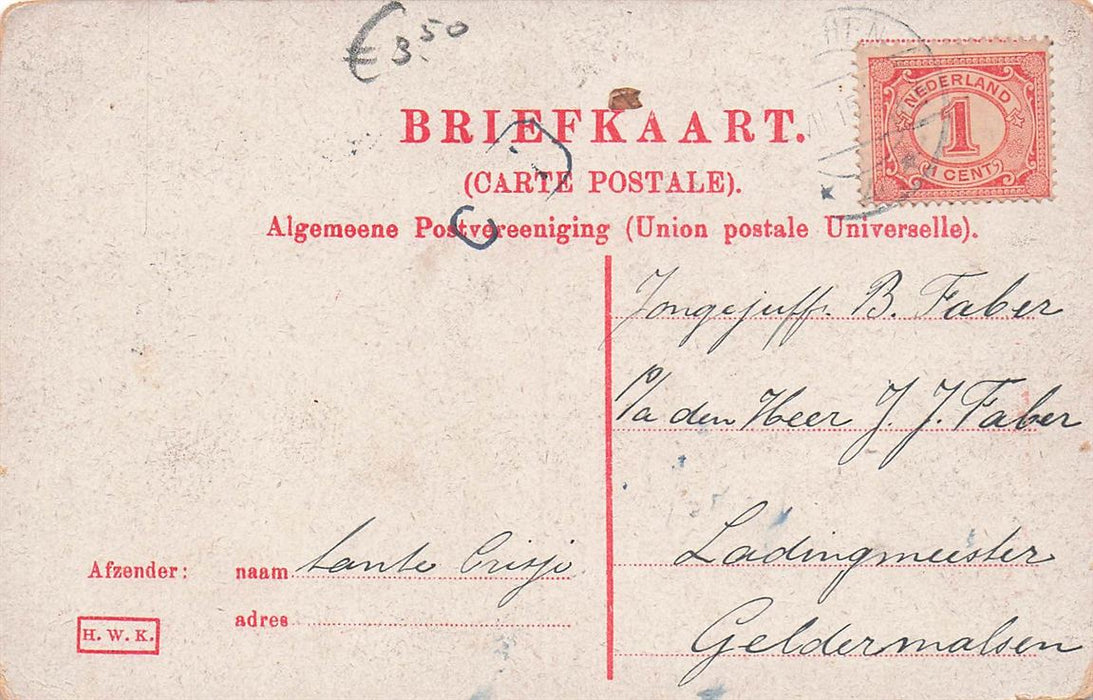 € 3.50
NEDERLAND
1
1 CENT
BRIEFKAART.
(CARTE POSTALE).
Algemeene Postvereeniging (Union postale Universelle).
Jongejuff. B. Faber
p/a den Heer J. J. Faber
Ladingmeester
Geldermalsen
Afzender: naam tante Crisje
adres
H. W. K.